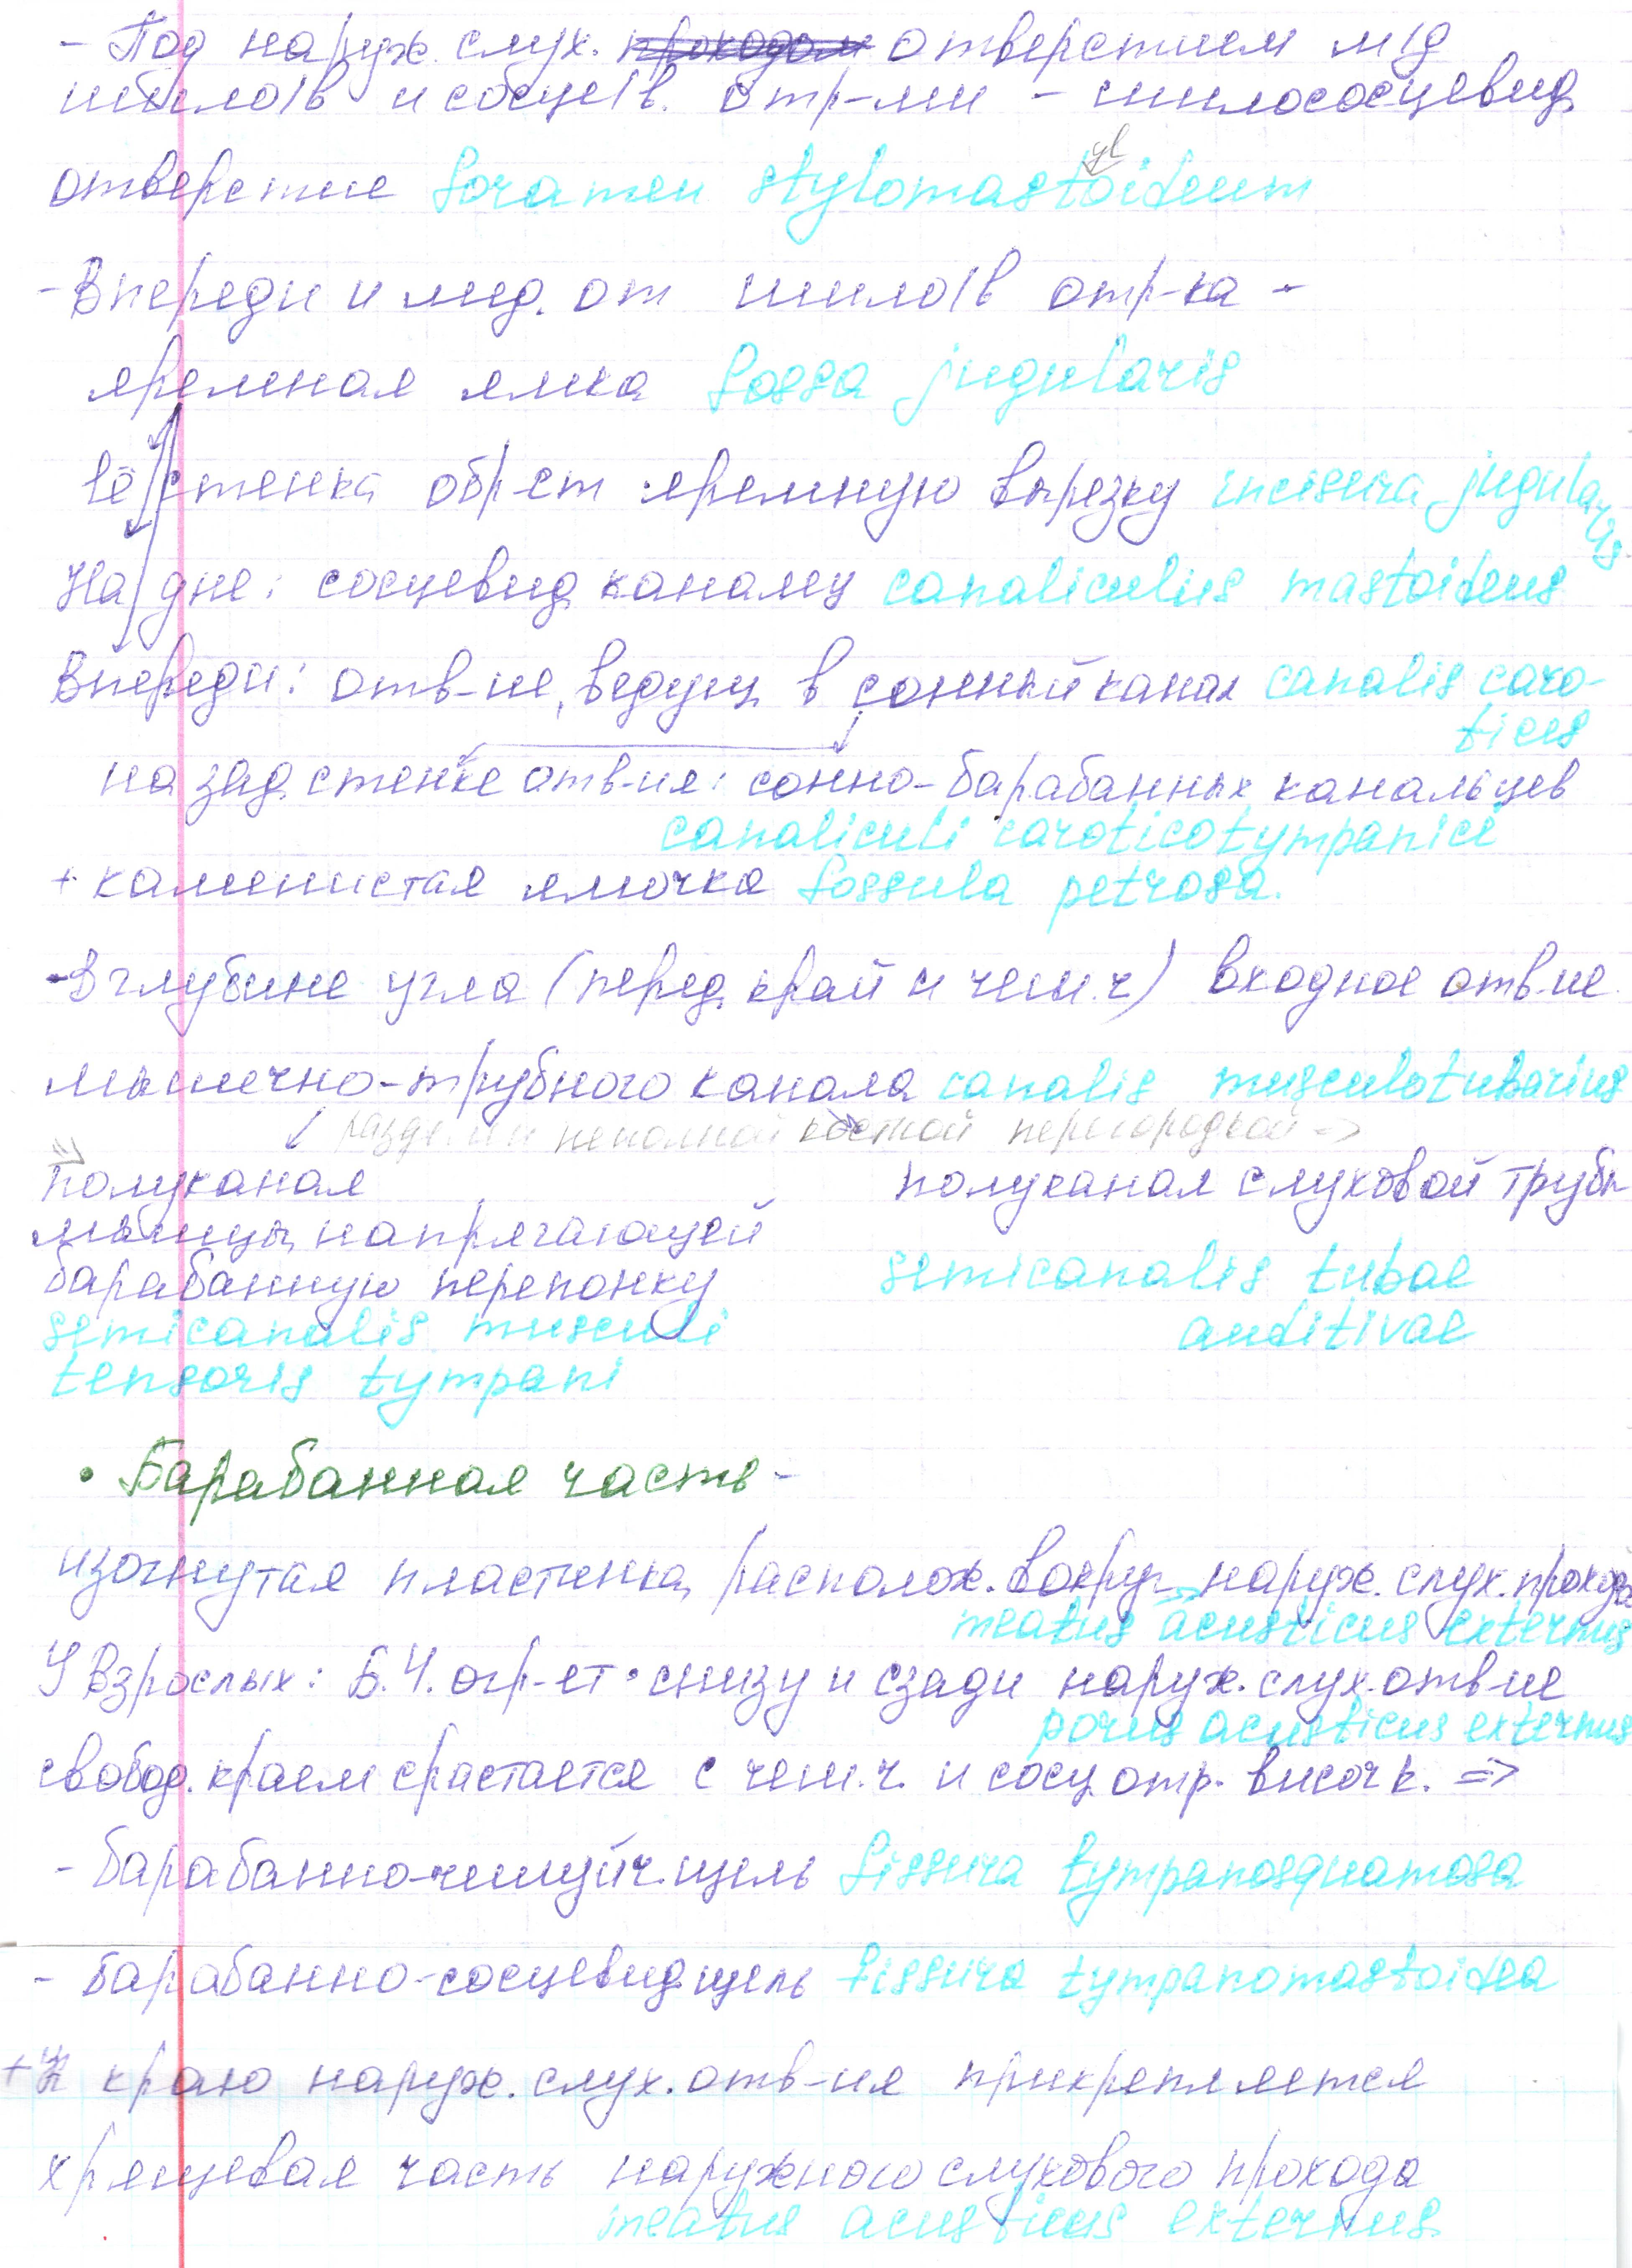 - Под наруж. слух. проходом отверстием м/д
шило/в и сосце/в. отр-ми - шилососцевид.
отверстие foramen stylomastoideum
- Впереди и мед. от шило/в отр-ка -
яремная ямка fossa jugularis
Её стенка обр-ет яремную вырезку incisura jugularis
На дне: сосцевид. каналец canaliculus mastoideus
Впереди: отв-ие, ведущ. в сонный канал canalis caro-
ticus
на зад. стенке отв-ия: сонно-барабанных канальцев
canaliculi caroticotympanici
+ каменистая ямочка fossula petrosa.
- В глубине угла (перед. край и чеш.ч) входное отв-ие
мышечно-трубного канала canalis musculotubarius
разделён неполной костной перегородкой =>
полуканал
мышцы, напрягающей
барабанную перепонку
semicanalis musculi
tensoris tympani
полуканал слуховой трубы
semicanalis tubae
auditivae
• Барабанная часть -
изогнутая пластинка, располож. вокруг наруж. слух. прохода
meatus acusticus externus
У взрослых: Б.Ч. огр-ет снизу и сзади наруж. слух. отв-ие
porus acusticus externus
свобод. краем срастается с чеш.ч. и сосц. отр. височ к. =>
- барабанно-чешуйч. щель fissura tympanosquamosa
- барабанно-сосцевид. щель fissura tympanomastoidea
+ К краю наруж. слух. отв-ия прикрепляется
хрящевая часть наружного слухового прохода
meatus acusticus externus.